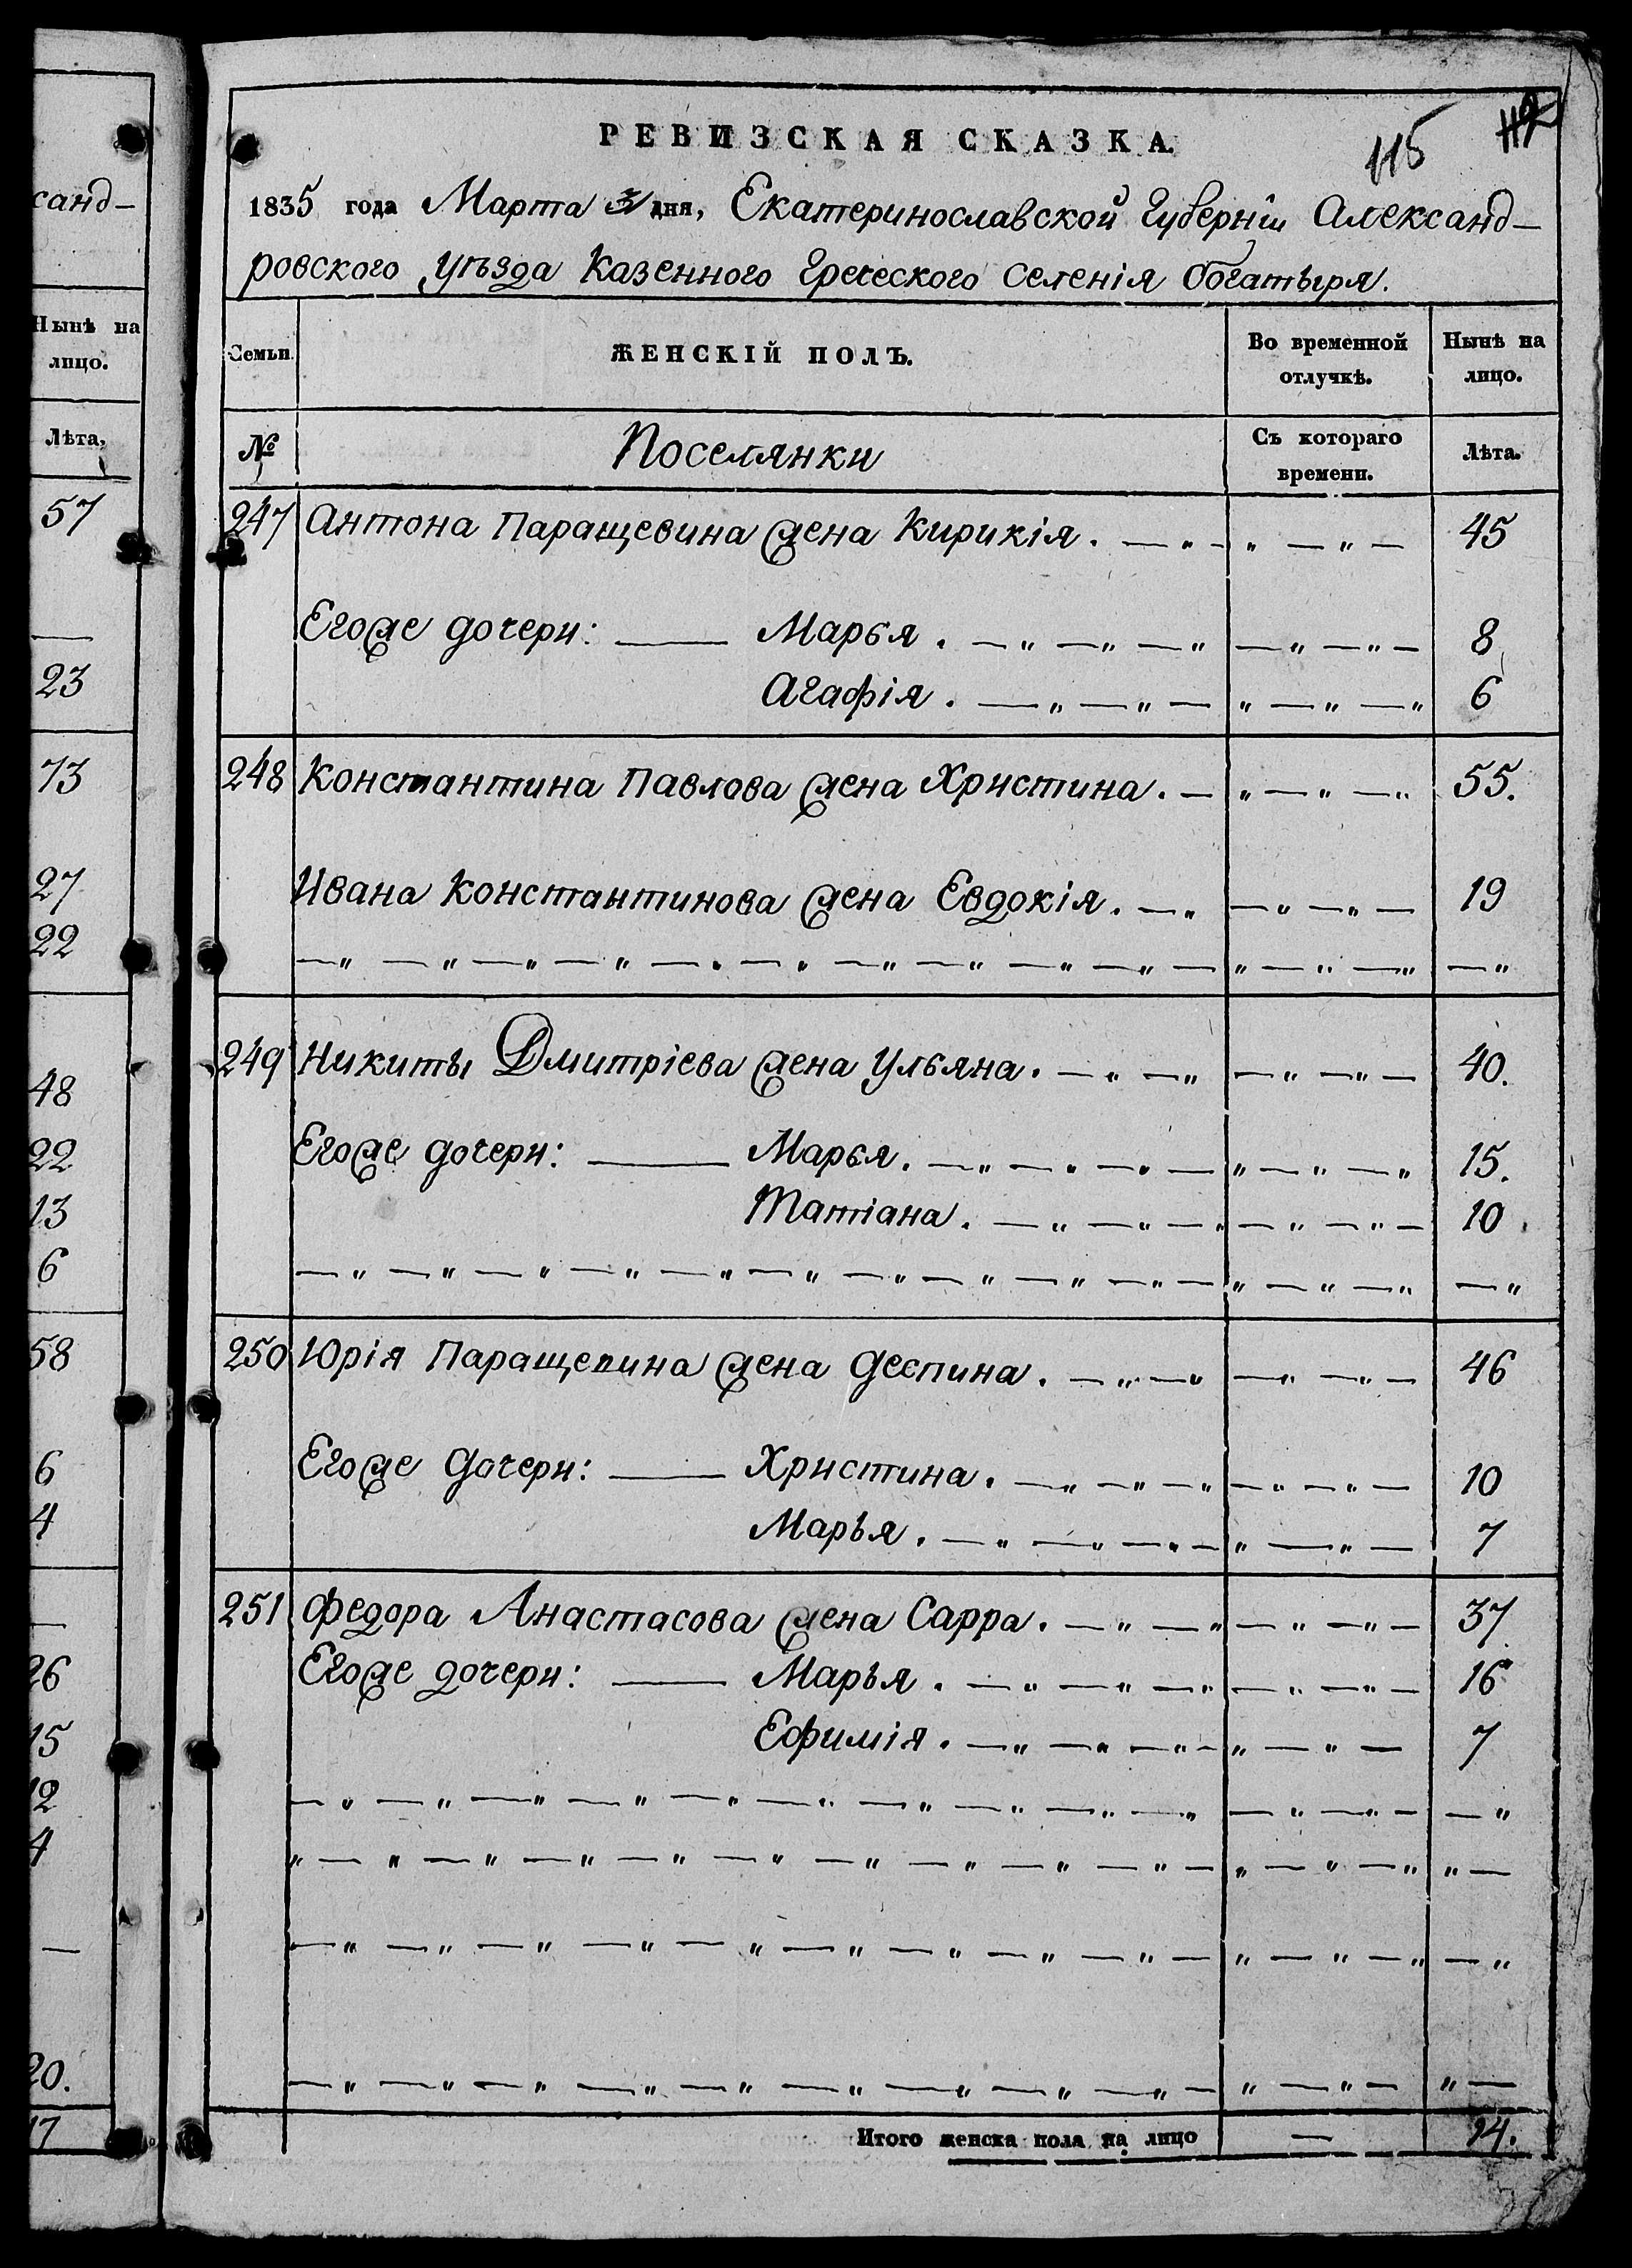 санд-
Нынѣ на
лицо.
Лѣта.
57
—
23
73
27
22
48
22
13
6
58
6
4
—
26
15
12
4
—
20.
17
115
РЕВИЗСКАЯ СКАЗКА.
1835 года Марта 3 дня, Екатеринославской Губерніи Александ-
ровского Уѣзда Казенного Греческого Селенія Богатыря.
Семьи. ЖЕНСКІЙ ПОЛЪ. Во временной отлучкѣ. Нынѣ на лицо.
№ Поселянки Съ котораго времени. Лѣта.
247 Антона Паращевина жена Кирикія. 45
Егоже дочери: Марья. 8
Агафія. 6
248 Константина Павлова жена Христина. 55.
Ивана Константинова жена Евдокія. 19
249 Никиты Дмитріева жена Ульяна. 40.
Егоже дочери: Марья. 15.
Татіана. 10
250 Юрія Паращевина жена Деспина. 46
Егоже дочери: Христина. 10
Марья. 7
251 Федора Анастасова жена Сарра. 37
Егоже дочери: Марья. 16
Ефимія. 7
Итого женска пола на лицо — 14.